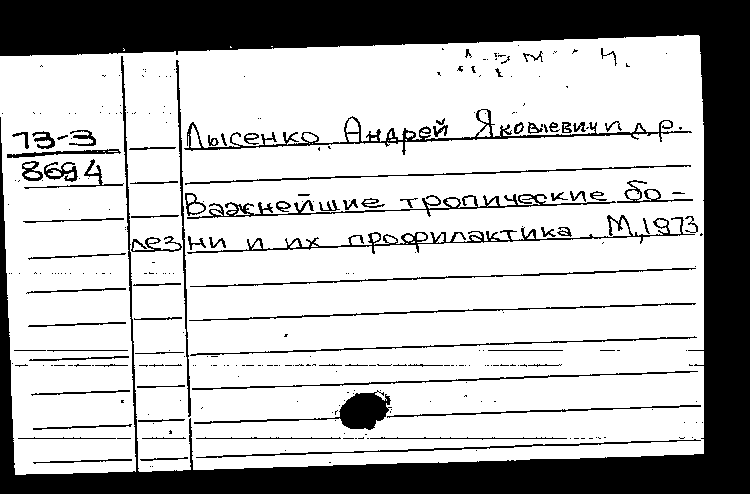 73-3
8694
Лысенко, Андрей Яковлевич и др.
Важнейшие тропические бо-
лезни и их профилактика. М., 1973.